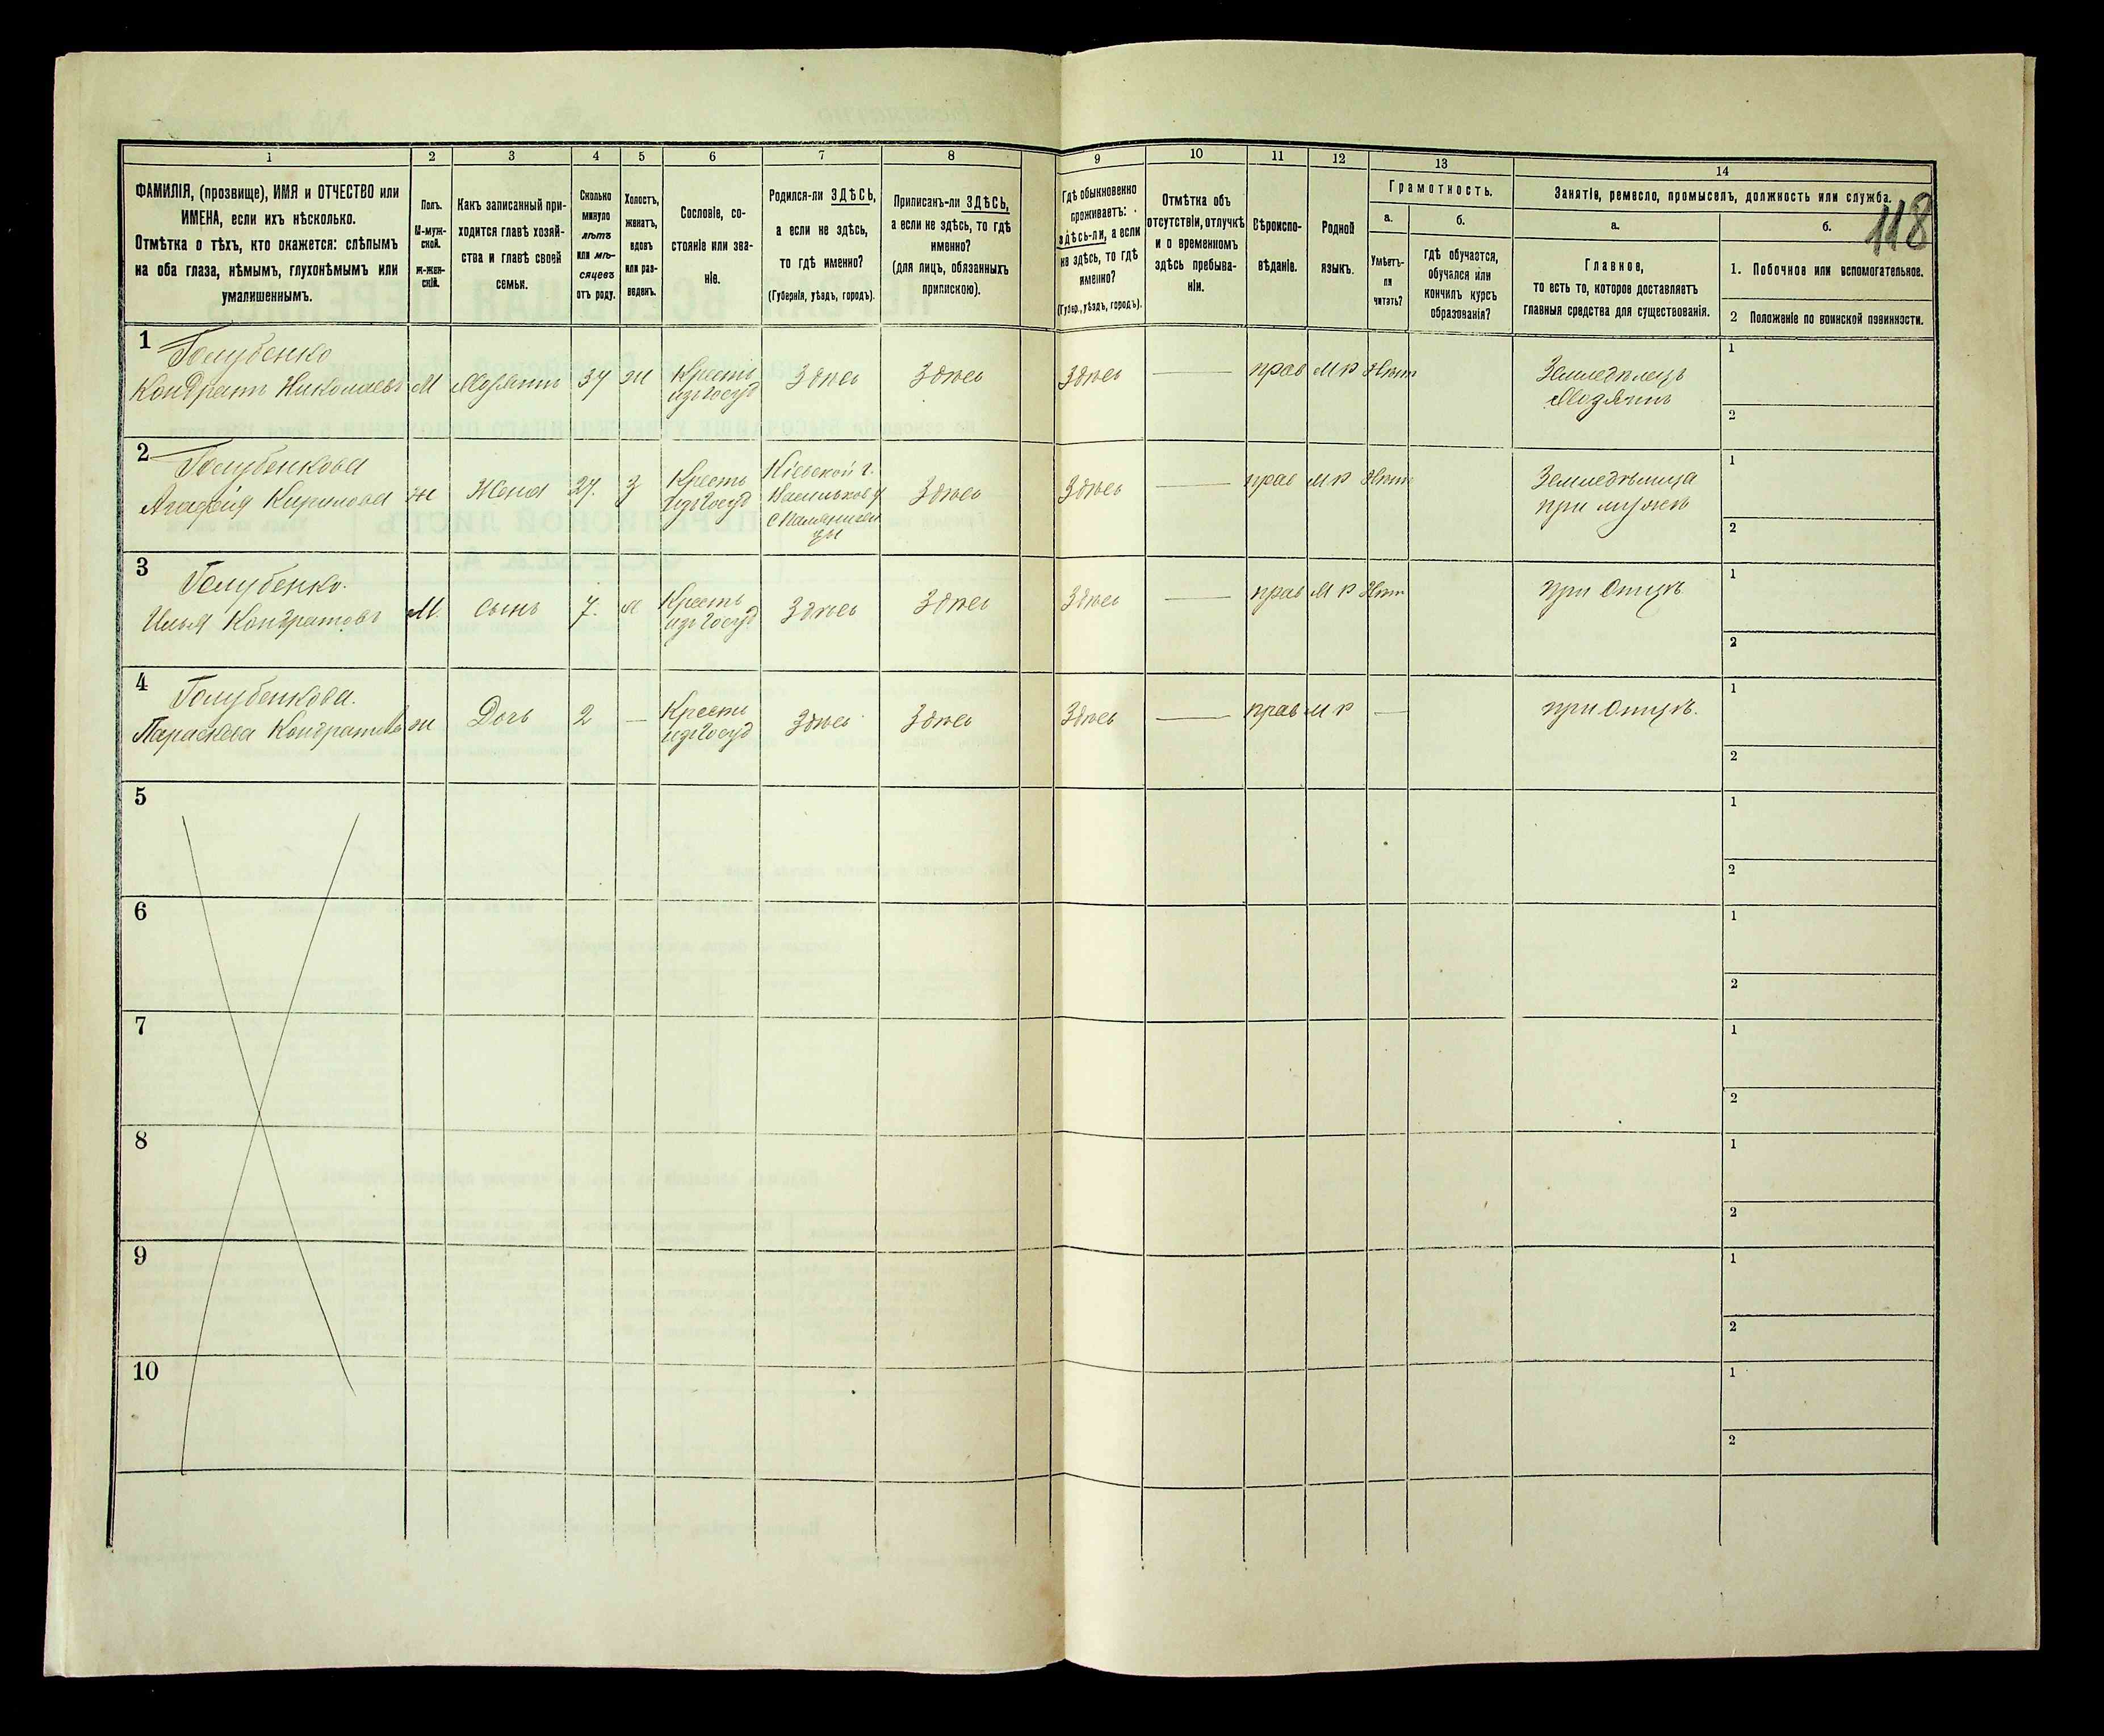 1
2
3
4
5
6
7
8
ФАМИЛІЯ, (прозвище), ИМЯ и ОТЧЕСТВО или
ИМЕНА, если ихъ нѣсколько.
Отмѣтка о тѣхъ, кто окажется: слѣпымъ
на оба глаза, нѣмымъ, глухонѣмымъ или
умалишеннымъ.
Полъ.
М-муж-
ской.
ж-жен-
скій.
Какъ записанный при-
ходится главѣ хозяй-
ства и главѣ своей
семьи.
Сколько
минуло
лѣтъ
или мѣ-
сяцевъ
отъ роду.
Холостъ,
женатъ,
вдовъ
или раз-
веденъ.
Сословіе, со-
стояніе или зва-
ніе.
Родился-ли ЗДѢСЬ,
а если не здѣсь,
то гдѣ именно?
(Губернія, уѣздъ, городъ).
Приписанъ-ли ЗДѢСЬ,
а если не здѣсь, то гдѣ
именно?
(для лицъ, обязанныхъ
припискою).
9
10
11
12
13
14
Гдѣ обыкновенно
проживаетъ:
здѣсь-ли, а если
не здѣсь, то гдѣ
именно?
(Губер., уѣздъ, городъ).
Отмѣтка объ
отсутствіи, отлучкѣ
и о временномъ
здѣсь пребыва-
ніи.
Вѣроиспо-
вѣданіе.
Родной
языкъ.
Грамотность.
а.
б.
Умѣетъ-
ли
читать?
гдѣ обучается,
обучался или
кончилъ курсъ
образованія?
Занятія, ремесло, промыселъ, должность или служба.
118
а.
б.
Главное,
то есть то, которое доставляетъ
главныя средства для существованія.
1. Побочное или вспомогательное.
2 Положеніе по воинской повинности.
1
Голубенко
Кондратъ Николаевъ М Хозяинъ 37 ж Крестьи
изъ Госуд
Здѣсь Здѣсь Здѣсь — прав М Р Нѣтъ
Земледѣлецъ
Хозяинъ
1
2
2
Голубенкова
Агафія Кирилова ж Жена 27. з Кресть
изъ Госуд
Кіевской г.
Васильков у
Здѣсь Здѣсь — прав М Р Нѣтъ
Земледѣлица
при мужѣ
1
2
3
Голубенко.
Илья Кондратовъ М. Сынъ 7. х Кресть
изъ Госуд
Здѣсь Здѣсь Здѣсь — прав М Р Нѣтъ
при Отцѣ.
1
2
4
Голубенкова.
Параскева Кондратова ж Дочь 2 — Крестьи
изъ Госуд
Здѣсь Здѣсь Здѣсь — прав М Р —
при Отцѣ.
1
2
5
1
2
6
1
2
7
1
2
8
1
2
9
1
2
10
1
2